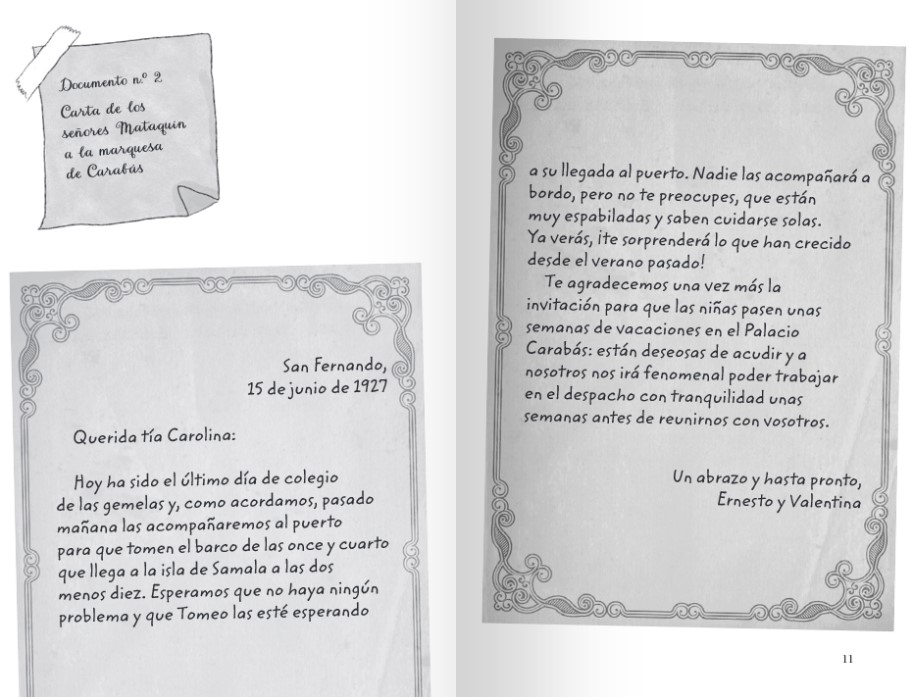 Documento n.º 2
Carta de los
señores Mataquin
a la marquesa
de Carabás
San Fernando,
15 de junio de 1927
Querida tía Carolina:
Hoy ha sido el último día de colegio
de las gemelas y, como acordamos, pasado
mañana las acompañaremos al puerto
para que tomen el barco de las once y cuarto
que llega a la isla de Samala a las dos
menos diez. Esperamos que no haya ningún
problema y que Tomeo las esté esperando
a su llegada al puerto. Nadie las acompañará a
bordo, pero no te preocupes, que están
muy espabiladas y saben cuidarse solas.
Ya verás, ¡te sorprenderá lo que han crecido
desde el verano pasado!
Te agradecemos una vez más la
invitación para que las niñas pasen unas
semanas de vacaciones en el Palacio
Carabás: están deseosas de acudir y a
nosotros nos irá fenomenal poder trabajar
en el despacho con tranquilidad unas
semanas antes de reunirnos con vosotros.
Un abrazo y hasta pronto,
Ernesto y Valentina
11